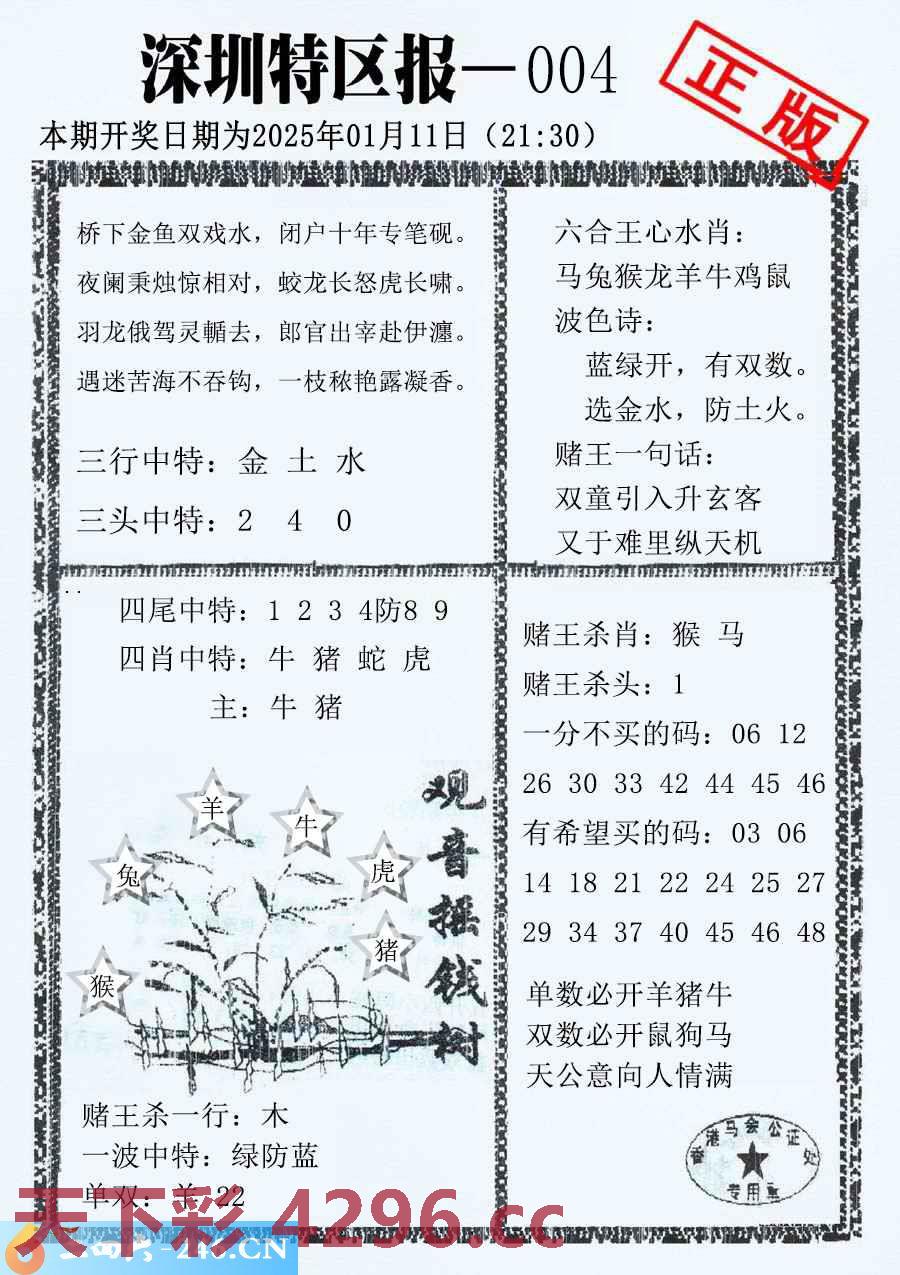 深圳特区报—004
正版
本期开奖日期为2025年01月11日（21:30）
桥下金鱼双戏水，闭户十年专笔砚。
夜阑秉烛惊相对，蛟龙长怒虎长啸。
羽龙俄驾灵輴去，郎官出宰赴伊瀍。
遇迷苦海不吞钩，一枝秾艳露凝香。
三行中特：金 土 水
三头中特：2 4 0
六合王心水肖：
马兔猴龙羊牛鸡鼠
波色诗：
蓝绿开，有双数。
选金水，防土火。
赌王一句话：
双童引入升玄客
又于难里纵天机
四尾中特：1 2 3 4防8 9
四肖中特：牛 猪 蛇 虎
主：牛 猪
羊
牛
兔
虎
猪
猴
观音摇钱树
赌王杀一行：木
一波中特：绿防蓝
单双：羊 22
赌王杀肖：猴 马
赌王杀头：1
一分不买的码：06 12
26 30 33 42 44 45 46
有希望买的码：03 06
14 18 21 22 24 25 27
29 34 37 40 45 46 48
单数必开羊猪牛
双数必开鼠狗马
天公意向人情满
香港马会公证处
专用章
天下彩 4296.cc